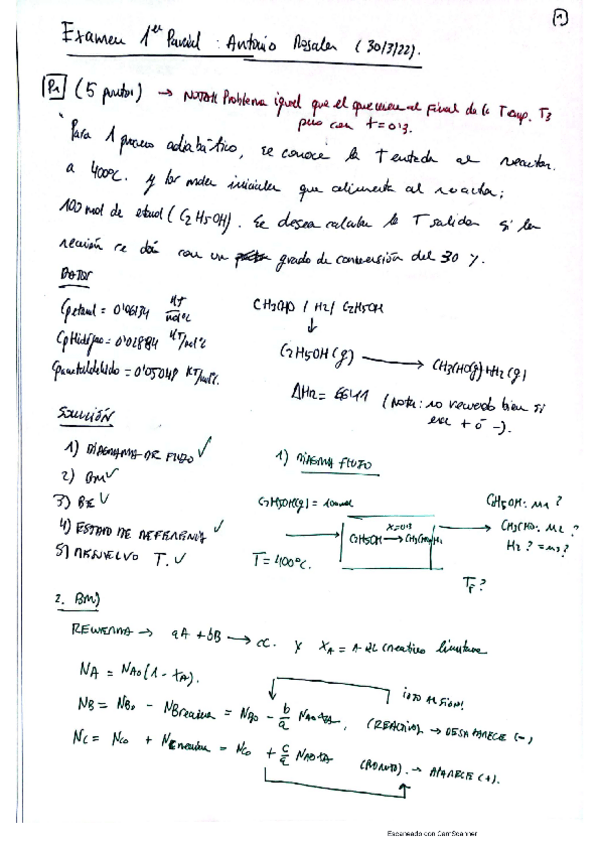 1
Examen 1er Parcial : Antonio Rosales (30/3/22).
P1 (5 puntos) → NOTA: Problema igual que el que viene al final de la Temp. T3
pero con t=0'3.
"Para 1 proceso adiabático, se conoce la T entrada al reactor.
a 400ºC. y los moles iniciales que alimenta al reactor;
100 mol de etanol (C2H5OH). Se desea calcular la T salida si la
reacción se dá con un grado de conversión del 30 %.
DATOS
Cpetanol = 0'06134 KJ/molºC
CpHidrógeno = 0'02884 KJ/molºC
Cpacetaldehído = 0'05048 KJ/molºC.
CH3CHO / H2 / C2H5OH
↓
C2H5OH(g) → CH3CHO(g) + H2(g)
ΔHr = 6641 (Nota: no recuerdo bien si
era + ó -).
SOLUCIÓN
1) DIAGRAMA DE FLUJO ✓
2) BM ✓
3) BE ✓
4) ESTADO DE REFERENCIA ✓
5) RESUELVO T. ✓
1) DIAGRAMA FLUJO
C2H5OH(g) = 100mol
T = 400ºC.
X=0'3
C2H5OH → CH3CHO+H2
C2H5OH: n1 ?
CH3CHO: n2 ?
H2 ? = n3 ?
TF ?
2. BM)
RECUERDA → aA + bB → cC. y XA = X del reactivo limitante
NA = NA0(1 - XA).
NB = NB0 - NBreacciona = NB0 - b/a NA0XA. (REACTIVO) → DESAPARECE (-)
NC = NC0 + NCreacciona = NC0 + c/a NA0XA (PRODUCTO). → APARECE (+).
Escaneado con CamScanner